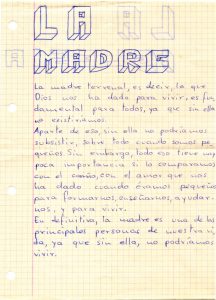 LA
MADRE
La madre terrenal, es decir, la que
Dios nos ha dado para vivir, es fun_
damental para todos, ya que sin ella
no existiríamos.
Aparte de eso, sin ella no podríamos
subsistir, sobre todo cuando somos pe_
queños. Sin embargo, todo eso tiene muy
poca importancia si lo comparamos
con el cariño, con el amor que nos
ha dado cuando éramos pequeños
para formarnos, enseñarnos, ayudar_
nos, y para vivir.
En definitiva, la madre es una de las
principales personas de nuestra vi_
da, ya que sin ella, no podríamos
vivir.